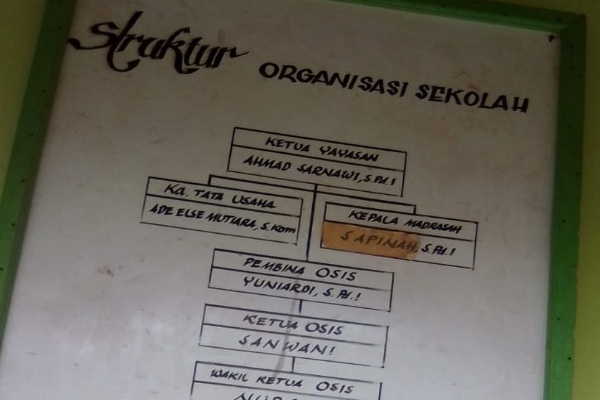 Struktur ORGANISASI SEKOLAH
KETUA YAYASAN
AHMAD SARNAWI, S.Pd.I
Ka. TATA USAHA
ADE ELSE MUTIARA, S.Kom
KEPALA MADRASAH
SAPINAH, S.Pd.I
PEMBINA OSIS
YUNIARDI, S.Pd.I
KETUA OSIS
SANWANI
WAKIL KETUA OSIS